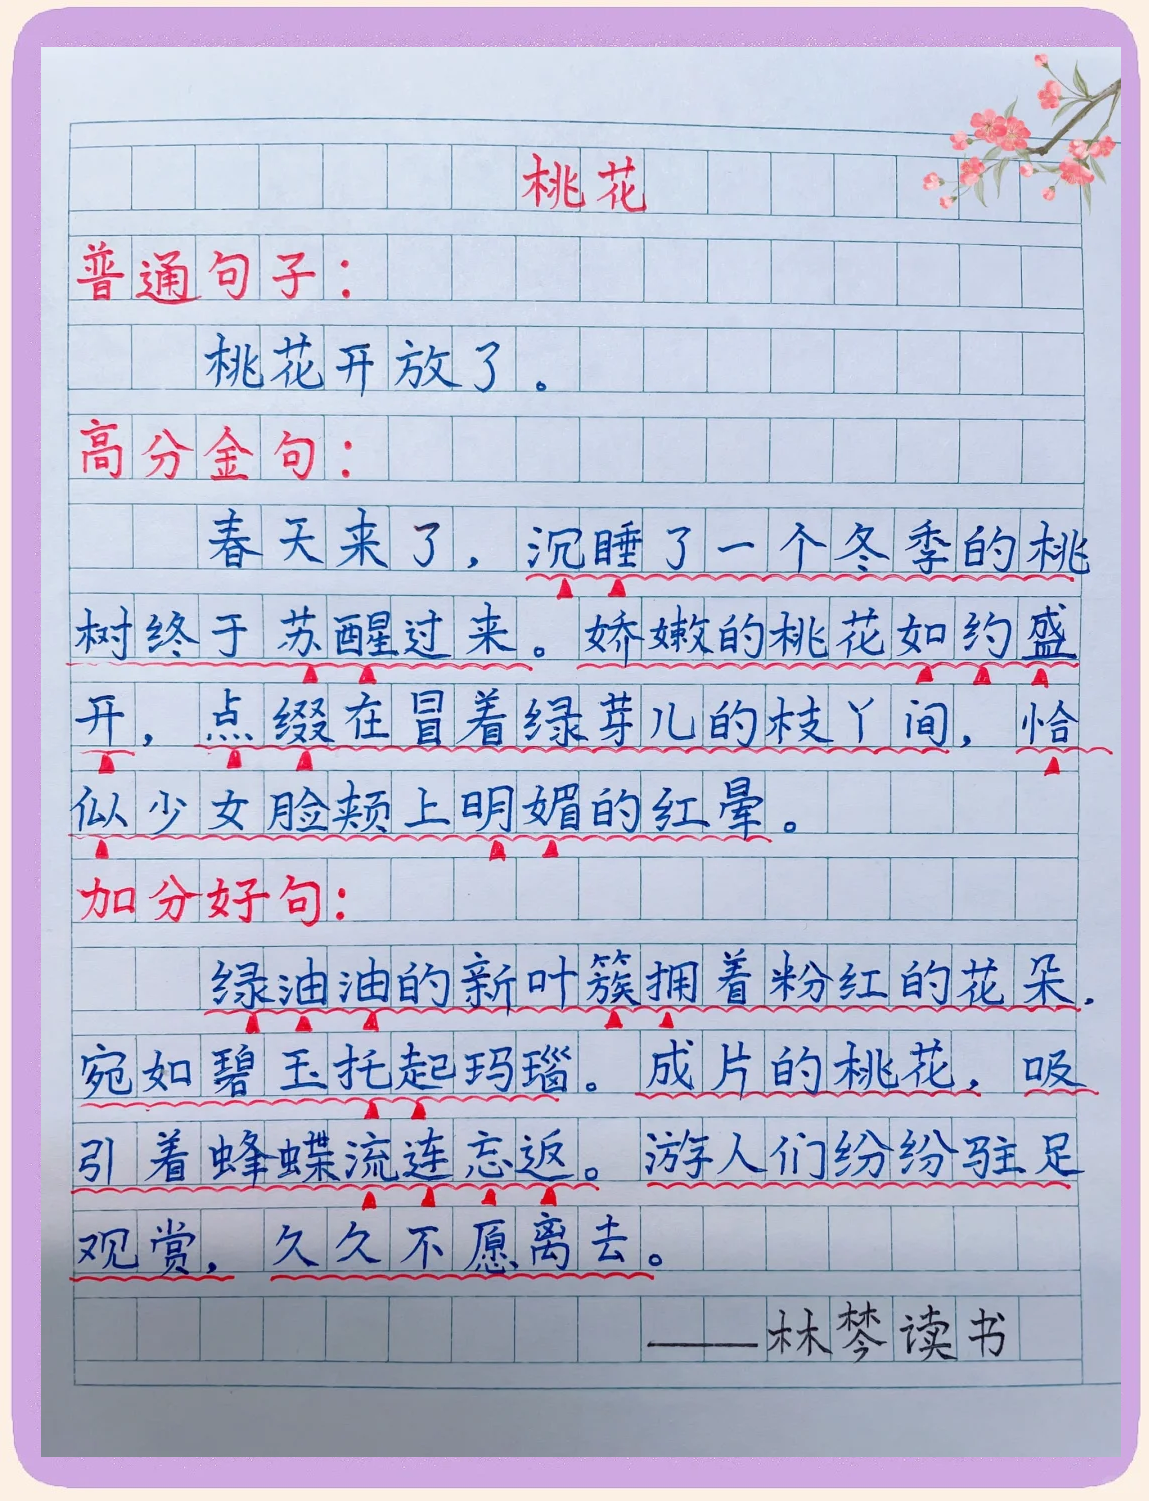 桃花
普通句子：
桃花开放了。
高分金句：
春天来了，沉睡了一个冬季的桃
树终于苏醒过来。娇嫩的桃花如约盛
开，点缀在冒着绿芽儿的枝丫间，恰
似少女脸颊上明媚的红晕。
加分好句：
绿油油的新叶簇拥着粉红的花朵，
宛如碧玉托起玛瑙。成片的桃花，吸
引着蜂蝶流连忘返。游人们纷纷驻足
观赏，久久不愿离去。
——林棽读书